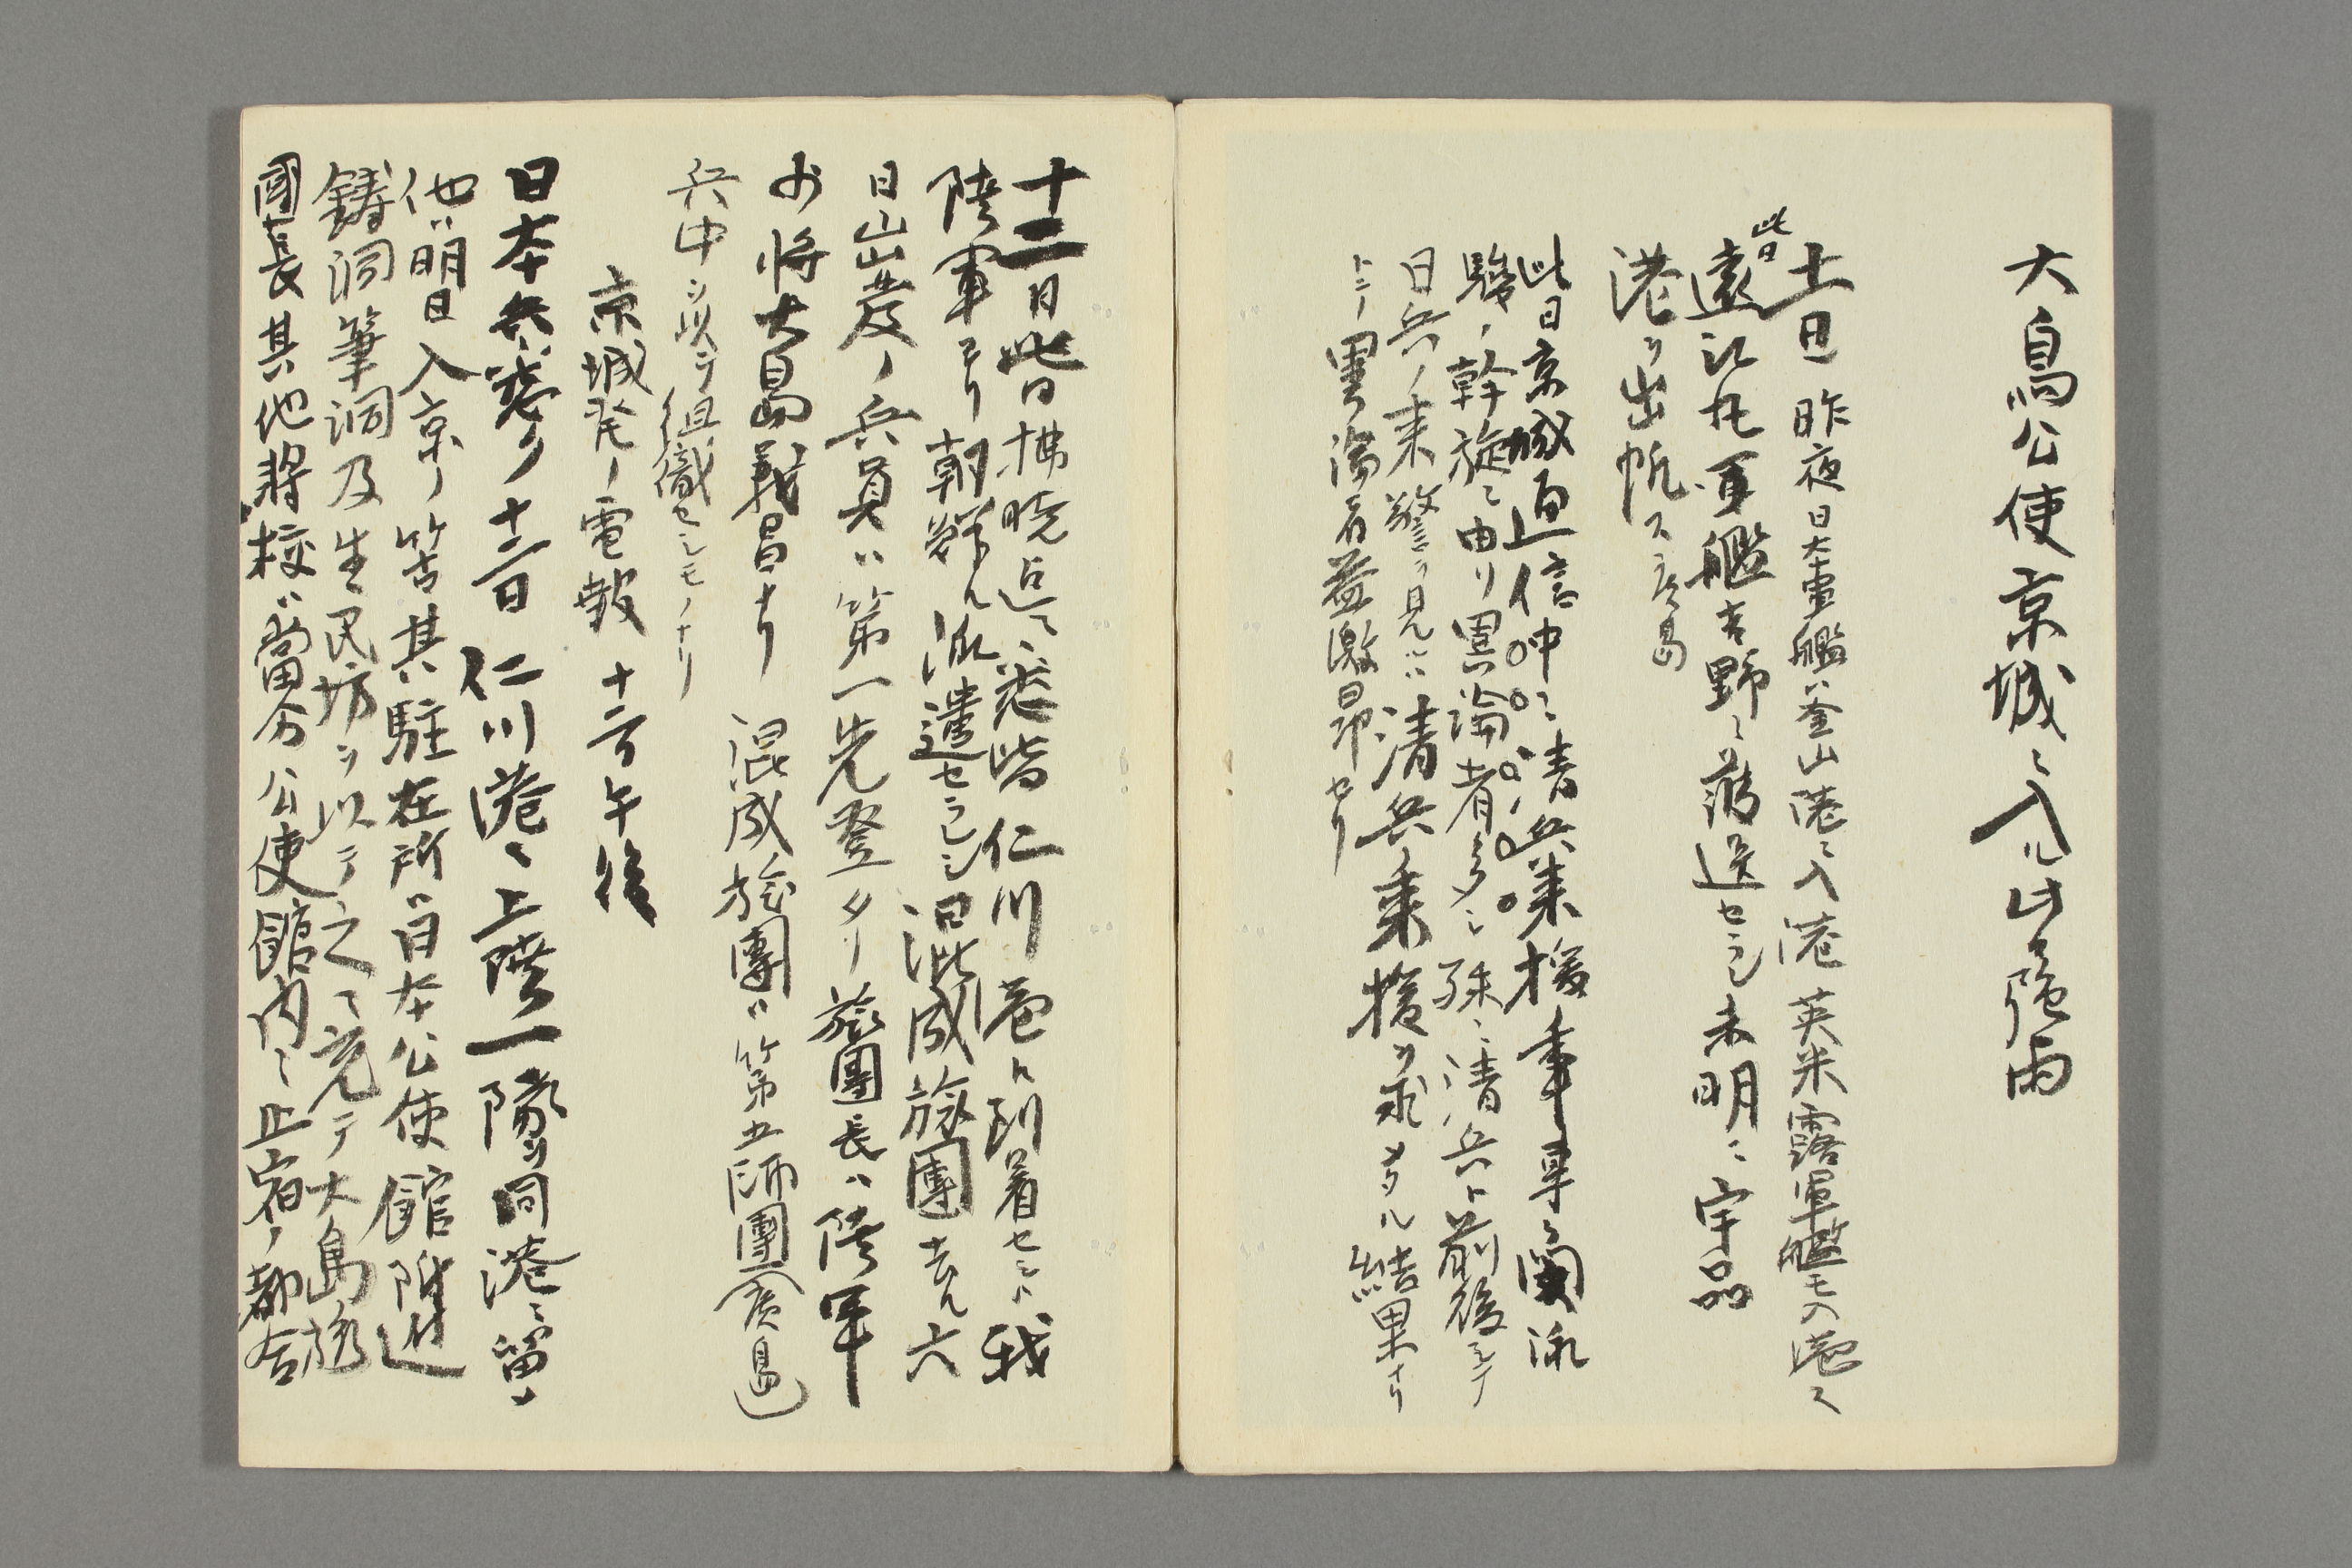 大鳥公使京城ニ入ル此日強雨
十一日 昨夜日本軍艦ハ釜山港ニ入港 英米露軍艦モ入港ス
此日
遠江丸軍艦吉野ニ護送セラレ未明ニ宇品
港ヲ出帆ス 広島
此日京城通信中ニ清兵来援ノ事ニ関係
ノ幹旋ニ由リ異論者多シ殊ニ清兵ト前後シテ
日兵ノ来ルヲ見レハ清兵ノ来援ヲ求メタル結果ナリ
トテ異論者益激昂セリ
十二日此日払暁迄ニ悉皆仁川港ニ到着セシト我
陸軍ヨリ朝鮮ヘ派遣セラレシ混成旅團去ル六
日出発ノ兵員ハ第一先登タリ旅團長ハ陸軍
少将大島義昌ナリ 混成旅團ハ第五師團(廣島)
兵中ヲ以テ組織セシモノナリ
京城発ノ電報 十二日午後
日本兵悉ク十二日仁川港ニ上陸一隊ヲ同港ニ留メ
他ハ明日入京ノ筈其駐在所ハ日本公使館附近
鋳洞筆洞及生民坊ヲ以テ之ニ充テ大島旅
團長其他将校ハ當分公使館内ニ止宿ノ都合